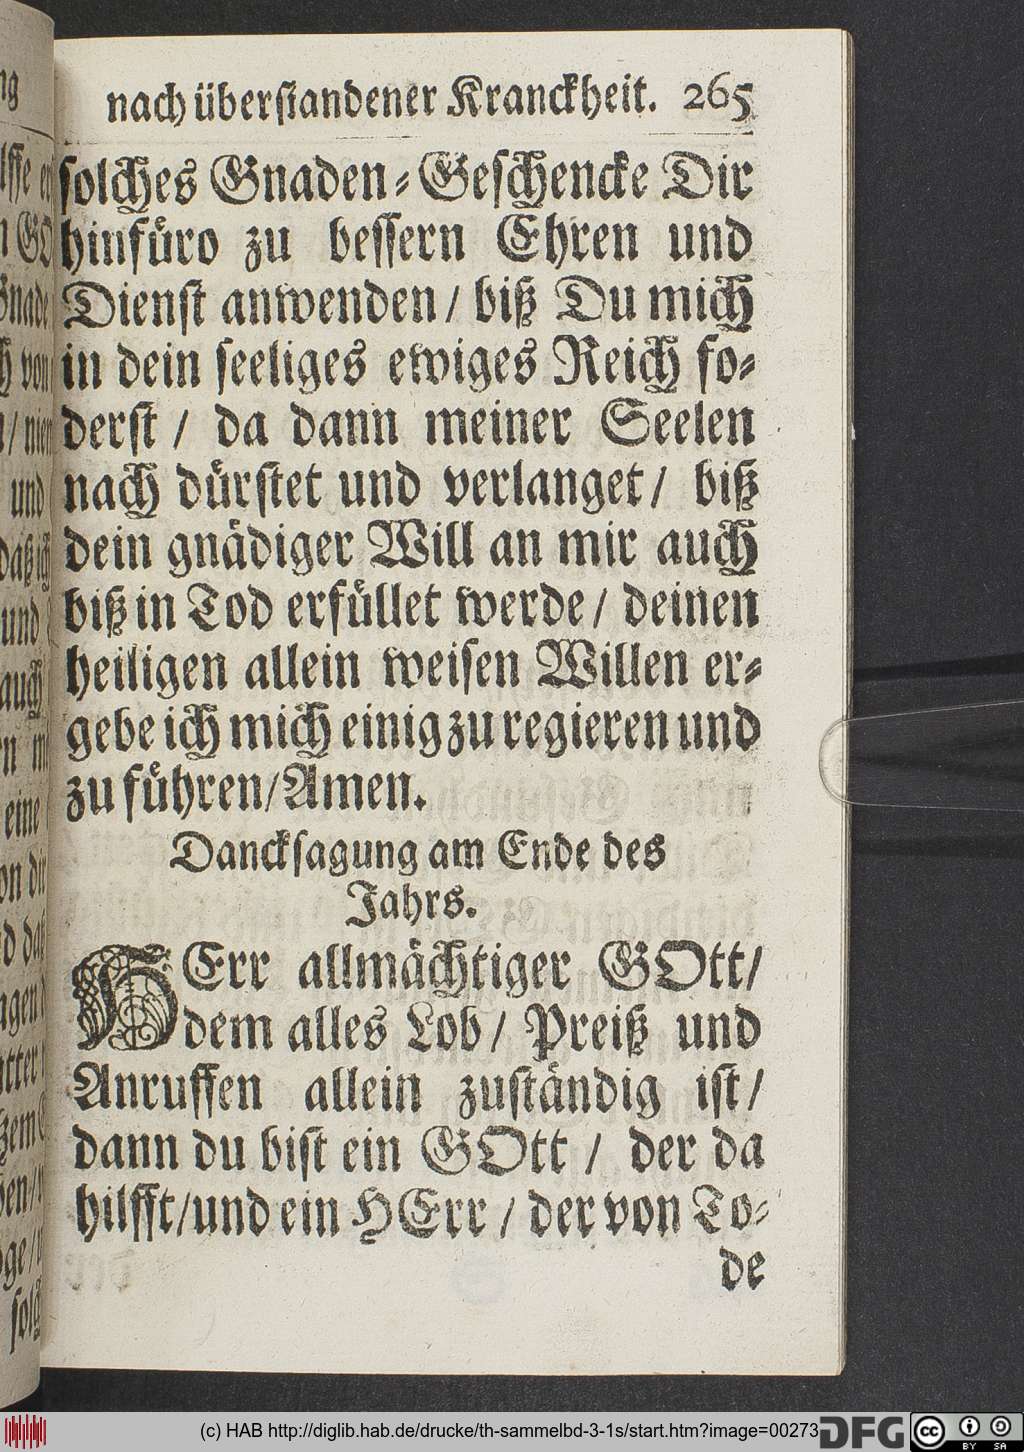 nach überstandener Kranckheit. 265
solches Gnaden-Geschencke Dir
hinfüro zu bessern Ehren und
Dienst anwenden / biß Du mich
in dein seeliges ewiges Reich fo-
derst / da dann meiner Seelen
nach dürstet und verlanget / biß
dein gnädiger Will an mir auch
biß in Tod erfüllet werde / deinen
heiligen allein weisen Willen er-
gebe ich mich einig zu regieren und
zu führen / Amen.
Dancksagung am Ende des
Jahrs.
HErr allmächtiger GOtt /
dem alles Lob / Preiß und
Anruffen allein zuständig ist /
dann du bist ein GOtt / der da
hilfft / und ein HErr / der von To-
de
(c) HAB http://diglib.hab.de/drucke/th-sammelbd-3-1s/start.htm?image=00273
DFG
cc
BY SA